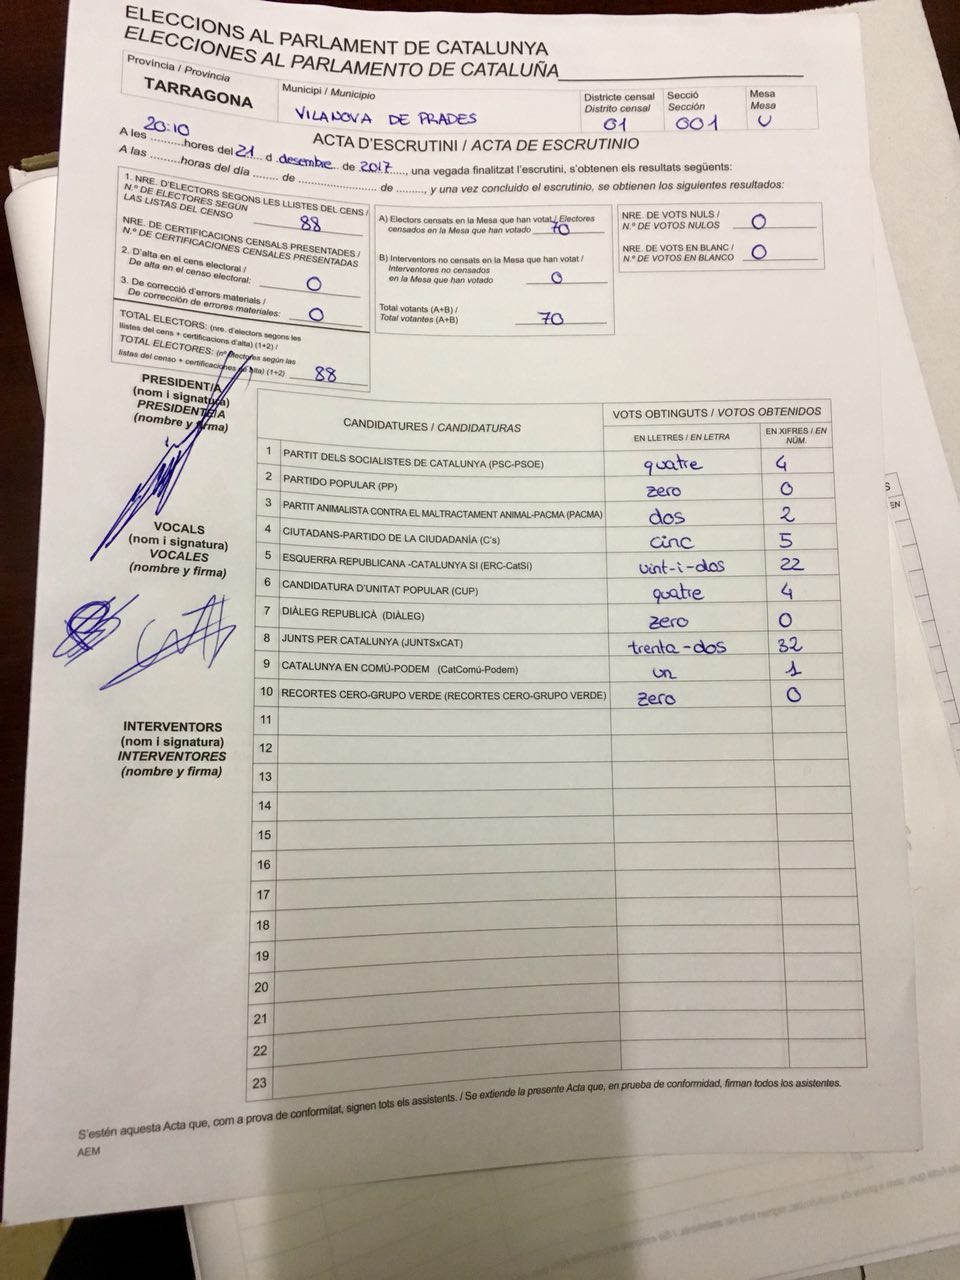 ELECCIONS AL PARLAMENT DE CATALUNYA
ELECCIONES AL PARLAMENTO DE CATALUÑA
Província / Provincia
TARRAGONA
Municipi / Municipio
VILANOVA DE PRADES
Districte censal
Distrito censal
01
Secció
Sección
001
Mesa
Mesa
U
ACTA D'ESCRUTINI / ACTA DE ESCRUTINIO
A les 20:10 hores del 21 d desembre de 2017, una vegada finalitzat l'escrutini, s'obtenen els resultats següents:
A las .........horas del día ....... de ........................ de ........, y una vez concluido el escrutinio, se obtienen los siguientes resultados:
1. NRE. D'ELECTORS SEGONS LES LLISTES DEL CENS /
N.º DE ELECTORES SEGÚN
LAS LISTAS DEL CENSO 88
NRE. DE CERTIFICACIONS CENSALS PRESENTADES /
N.º DE CERTIFICACIONES CENSALES PRESENTADAS
2. D'alta en el cens electoral /
De alta en el censo electoral: 0
3. De correcció d'errors materials /
De corrección de errores materiales: 0
TOTAL ELECTORS: (nre. d'electors segons les
llistes del cens + certificacions d'alta) (1+2) /
TOTAL ELECTORES: (nº electores según las
listas del censo + certificaciones de alta) (1+2) 88
A) Electors censats en la Mesa que han votat / Electores
censados en la Mesa que han votado 70
B) Interventors no censats en la Mesa que han votat /
Interventores no censados
en la Mesa que han votado 0
Total votants (A+B) /
Total votantes (A+B) 70
NRE. DE VOTS NULS /
N.º DE VOTOS NULOS 0
NRE. DE VOTS EN BLANC /
N.º DE VOTOS EN BLANCO 0
PRESIDENT/A
(nom i signatura)
PRESIDENTE/A
(nombre y firma)
VOCALS
(nom i signatura)
VOCALES
(nombre y firma)
INTERVENTORS
(nom i signatura)
INTERVENTORES
(nombre y firma)
CANDIDATURES / CANDIDATURAS
VOTS OBTINGUTS / VOTOS OBTENIDOS
EN LLETRES / EN LETRA
EN XIFRES / EN
NÚM.
1 PARTIT DELS SOCIALISTES DE CATALUNYA (PSC-PSOE) quatre 4
2 PARTIDO POPULAR (PP) zero 0
3 PARTIT ANIMALISTA CONTRA EL MALTRACTAMENT ANIMAL-PACMA (PACMA) dos 2
4 CIUTADANS-PARTIDO DE LA CIUDADANÍA (C's) cinc 5
5 ESQUERRA REPUBLICANA -CATALUNYA SI (ERC-CatSí) vint-i-dos 22
6 CANDIDATURA D'UNITAT POPULAR (CUP) quatre 4
7 DIÀLEG REPUBLICÀ (DIÀLEG) zero 0
8 JUNTS PER CATALUNYA (JUNTSxCAT) trenta-dos 32
9 CATALUNYA EN COMÚ-PODEM (CatComú-Podem) un 1
10 RECORTES CERO-GRUPO VERDE (RECORTES CERO-GRUPO VERDE) zero 0
11
12
13
14
15
16
17
18
19
20
21
22
23
S'estén aquesta Acta que, com a prova de conformitat, signen tots els assistents. / Se extiende la presente Acta que, en prueba de conformidad, firman todos los asistentes.
AEM